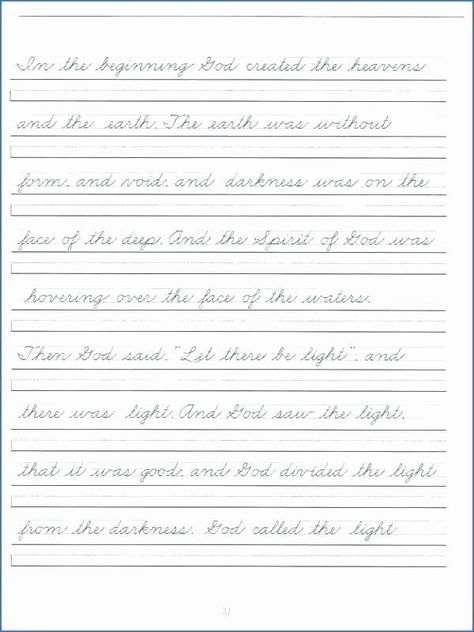 In the beginning God created the heavens
and the earth. The earth was without
form, and void, and darkness was on the
face of the deep. And the Spirit of God was
hovering over the face of the waters.
Then God said, "Let there be light", and
there was light. And God saw the light,
that it was good, and God divided the light
from the darkness. God called the light
31